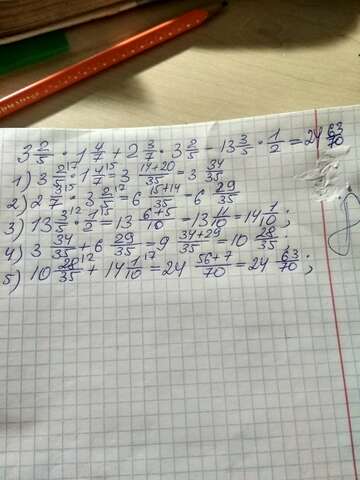 3 2/5 · 1 4/7 + 2 3/7 · 3 2/5 - 13 3/5 · 1/2 = 24 63/70
1) 3 2/5 · 1 4/7 = 3 14+20/35 = 3 34/35
2) 2 3/7 · 3 2/5 = 6 15+14/35 - 6 29/35
3) 13 3/5 · 1/2 = 13 6+5/10 - 13 11/10 = 14 1/10;
4) 3 34/35 + 6 29/35 = 9 34+29/35 = 10 28/35;
5) 10 28/35 + 14 1/10 = 24 56+7/70 = 24 63/70;